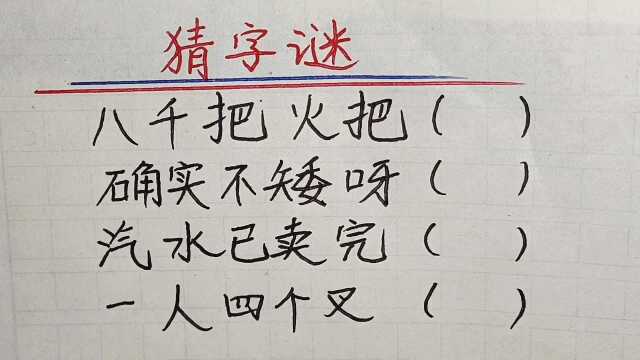 猜字谜
八千把火把( )
确实不矮呀( )
汽水已卖完( )
一人四个叉( )